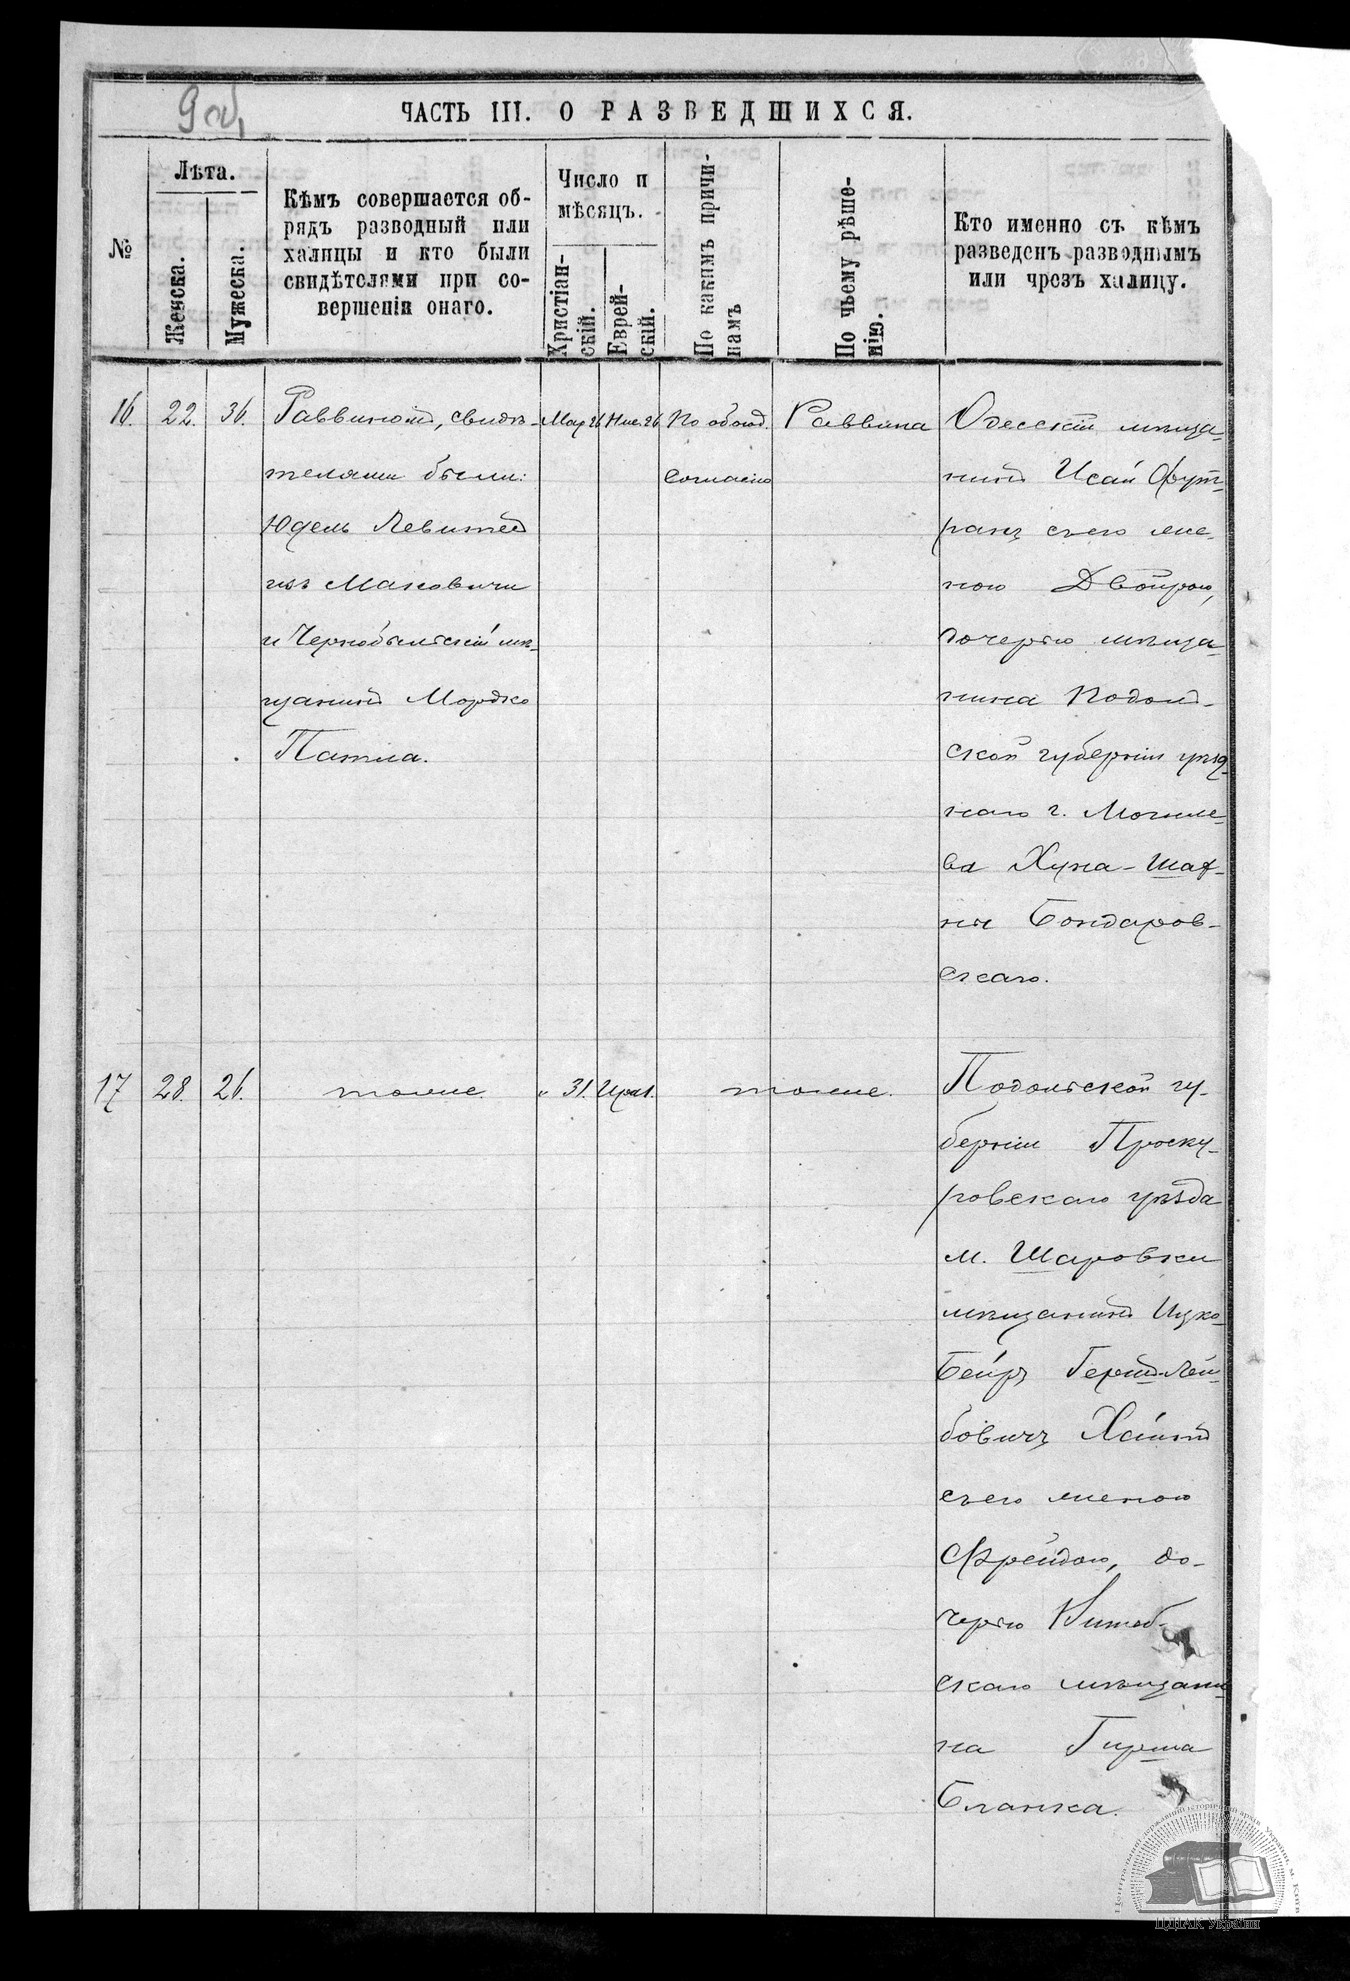 9 об,
ЧАСТЬ III. О РАЗВЕДШИХСЯ.
№
Лѣта.
Женска.
Мужеска.
Кѣмъ совершается об-
рядъ разводный или
халицы и кто были
свидѣтелями при со-
вершеніи онаго.
Число и
мѣсяцъ.
Христіан-
скій.
Еврей-
скій.
По какимъ причи-
намъ
По чьему рѣше-
нію.
Кто именно съ кѣмъ
разведенъ разводнымъ
или чрезъ халицу.
16. 22. 36.
Раввиномъ, свидѣ-
телями были:
Юдель Левитъ
изъ Макович
и Чернобыльскій мѣ-
щанинъ Мордко
Патла.
Мар 26
Нис. 26
По обоюд.
согласію
Раввина
Одесскій мѣща-
нинъ Исай Фут-
ранъ съ его же-
ною Двойрою,
дочерью мѣща-
нина Подоль-
ской губерніи уѣзд-
наго г. Могиле-
ва Хуна-Шай-
ны Бондаров-
скаго.
17 28. 26.
тоже.
" 31. Ияр 1.
тоже.
Подольской гу-
берніи Проску-
ровскаго уѣзда
м. Шаровки
мѣщанинъ Ицко-
Бейръ Гершъ-Лей-
бовичъ Хаимъ
съ его женою
Фрейдою, до-
черью Витеб-
скаго мѣщани-
на Гирша
Бланка.
Центральний державний історичний архів України, м. Київ
ЦДІАК України